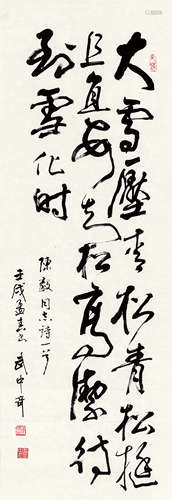 大雪壓青松青松挺
且直要知松高潔待
到雪化時
陳毅同志詩一首
壬戌孟春 武中奇